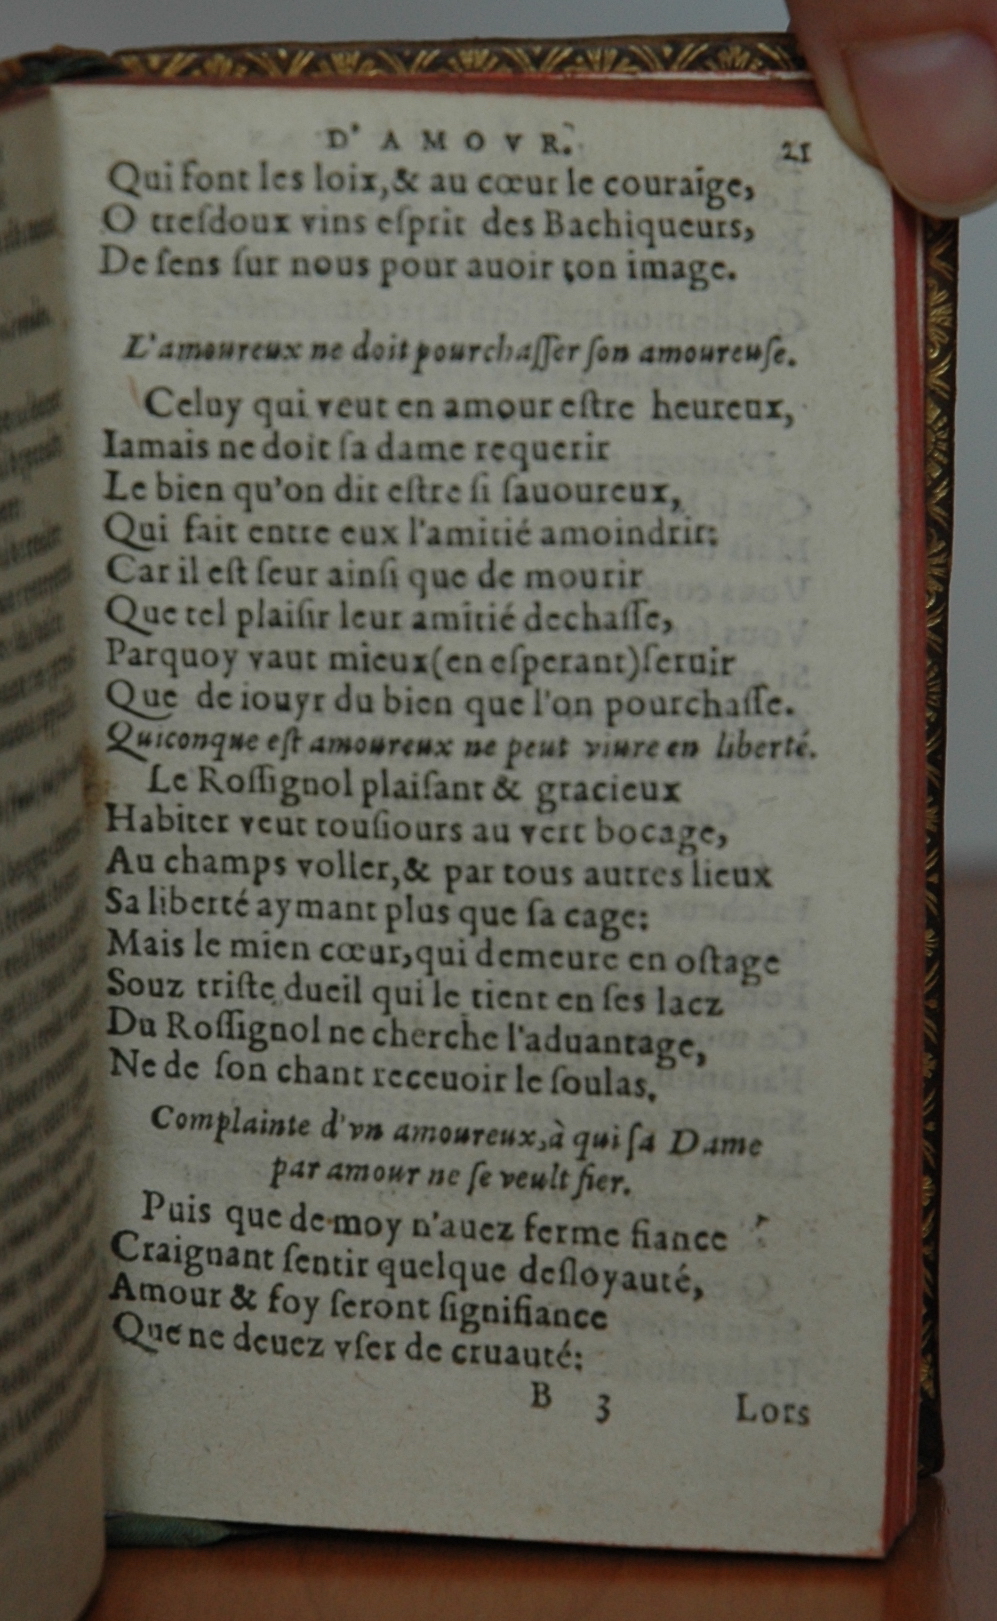 D' AMOVR. 21
Qui font les loix,& au cœur le couraige,
O treſdoux vins eſprit des Bachiqueurs,
De ſens ſur nous pour auoir ton image.
L'amoureux ne doit pourchaſſer ſon amoureuſe.
Celuy qui veut en amour eſtre heureux,
Iamais ne doit ſa dame requerir
Le bien qu'on dit eſtre ſi ſauoureux,
Qui fait entre eux l'amitié amoindrir:
Car il eſt ſeur ainſi que de mourir
Que tel plaiſir leur amitié dechaſſe,
Parquoy vaut mieux(en eſperant)ſeruir
Que de iouyr du bien que l'on pourchaſſe.
Quiconque eſt amoureux ne peut viure en liberté.
Le Roſſignol plaiſant & gracieux
Habiter veut touſiours au vert bocage,
Au champs voller,& par tous autres lieux
Sa liberté aymant plus que ſa cage:
Mais le mien cœur,qui demeure en oſtage
Souz triſte dueil qui le tient en ſes lacz
Du Roſſignol ne cherche l'aduantage,
Ne de ſon chant receuoir le ſoulas.
Complainte d'vn amoureux,à qui ſa Dame
par amour ne ſe veult fier.
Puis que de moy n'auez ferme fiance
Craignant ſentir quelque deſloyauté,
Amour & foy ſeront ſignifiance
Que ne deuez vſer de cruauté:
B 3 Lors